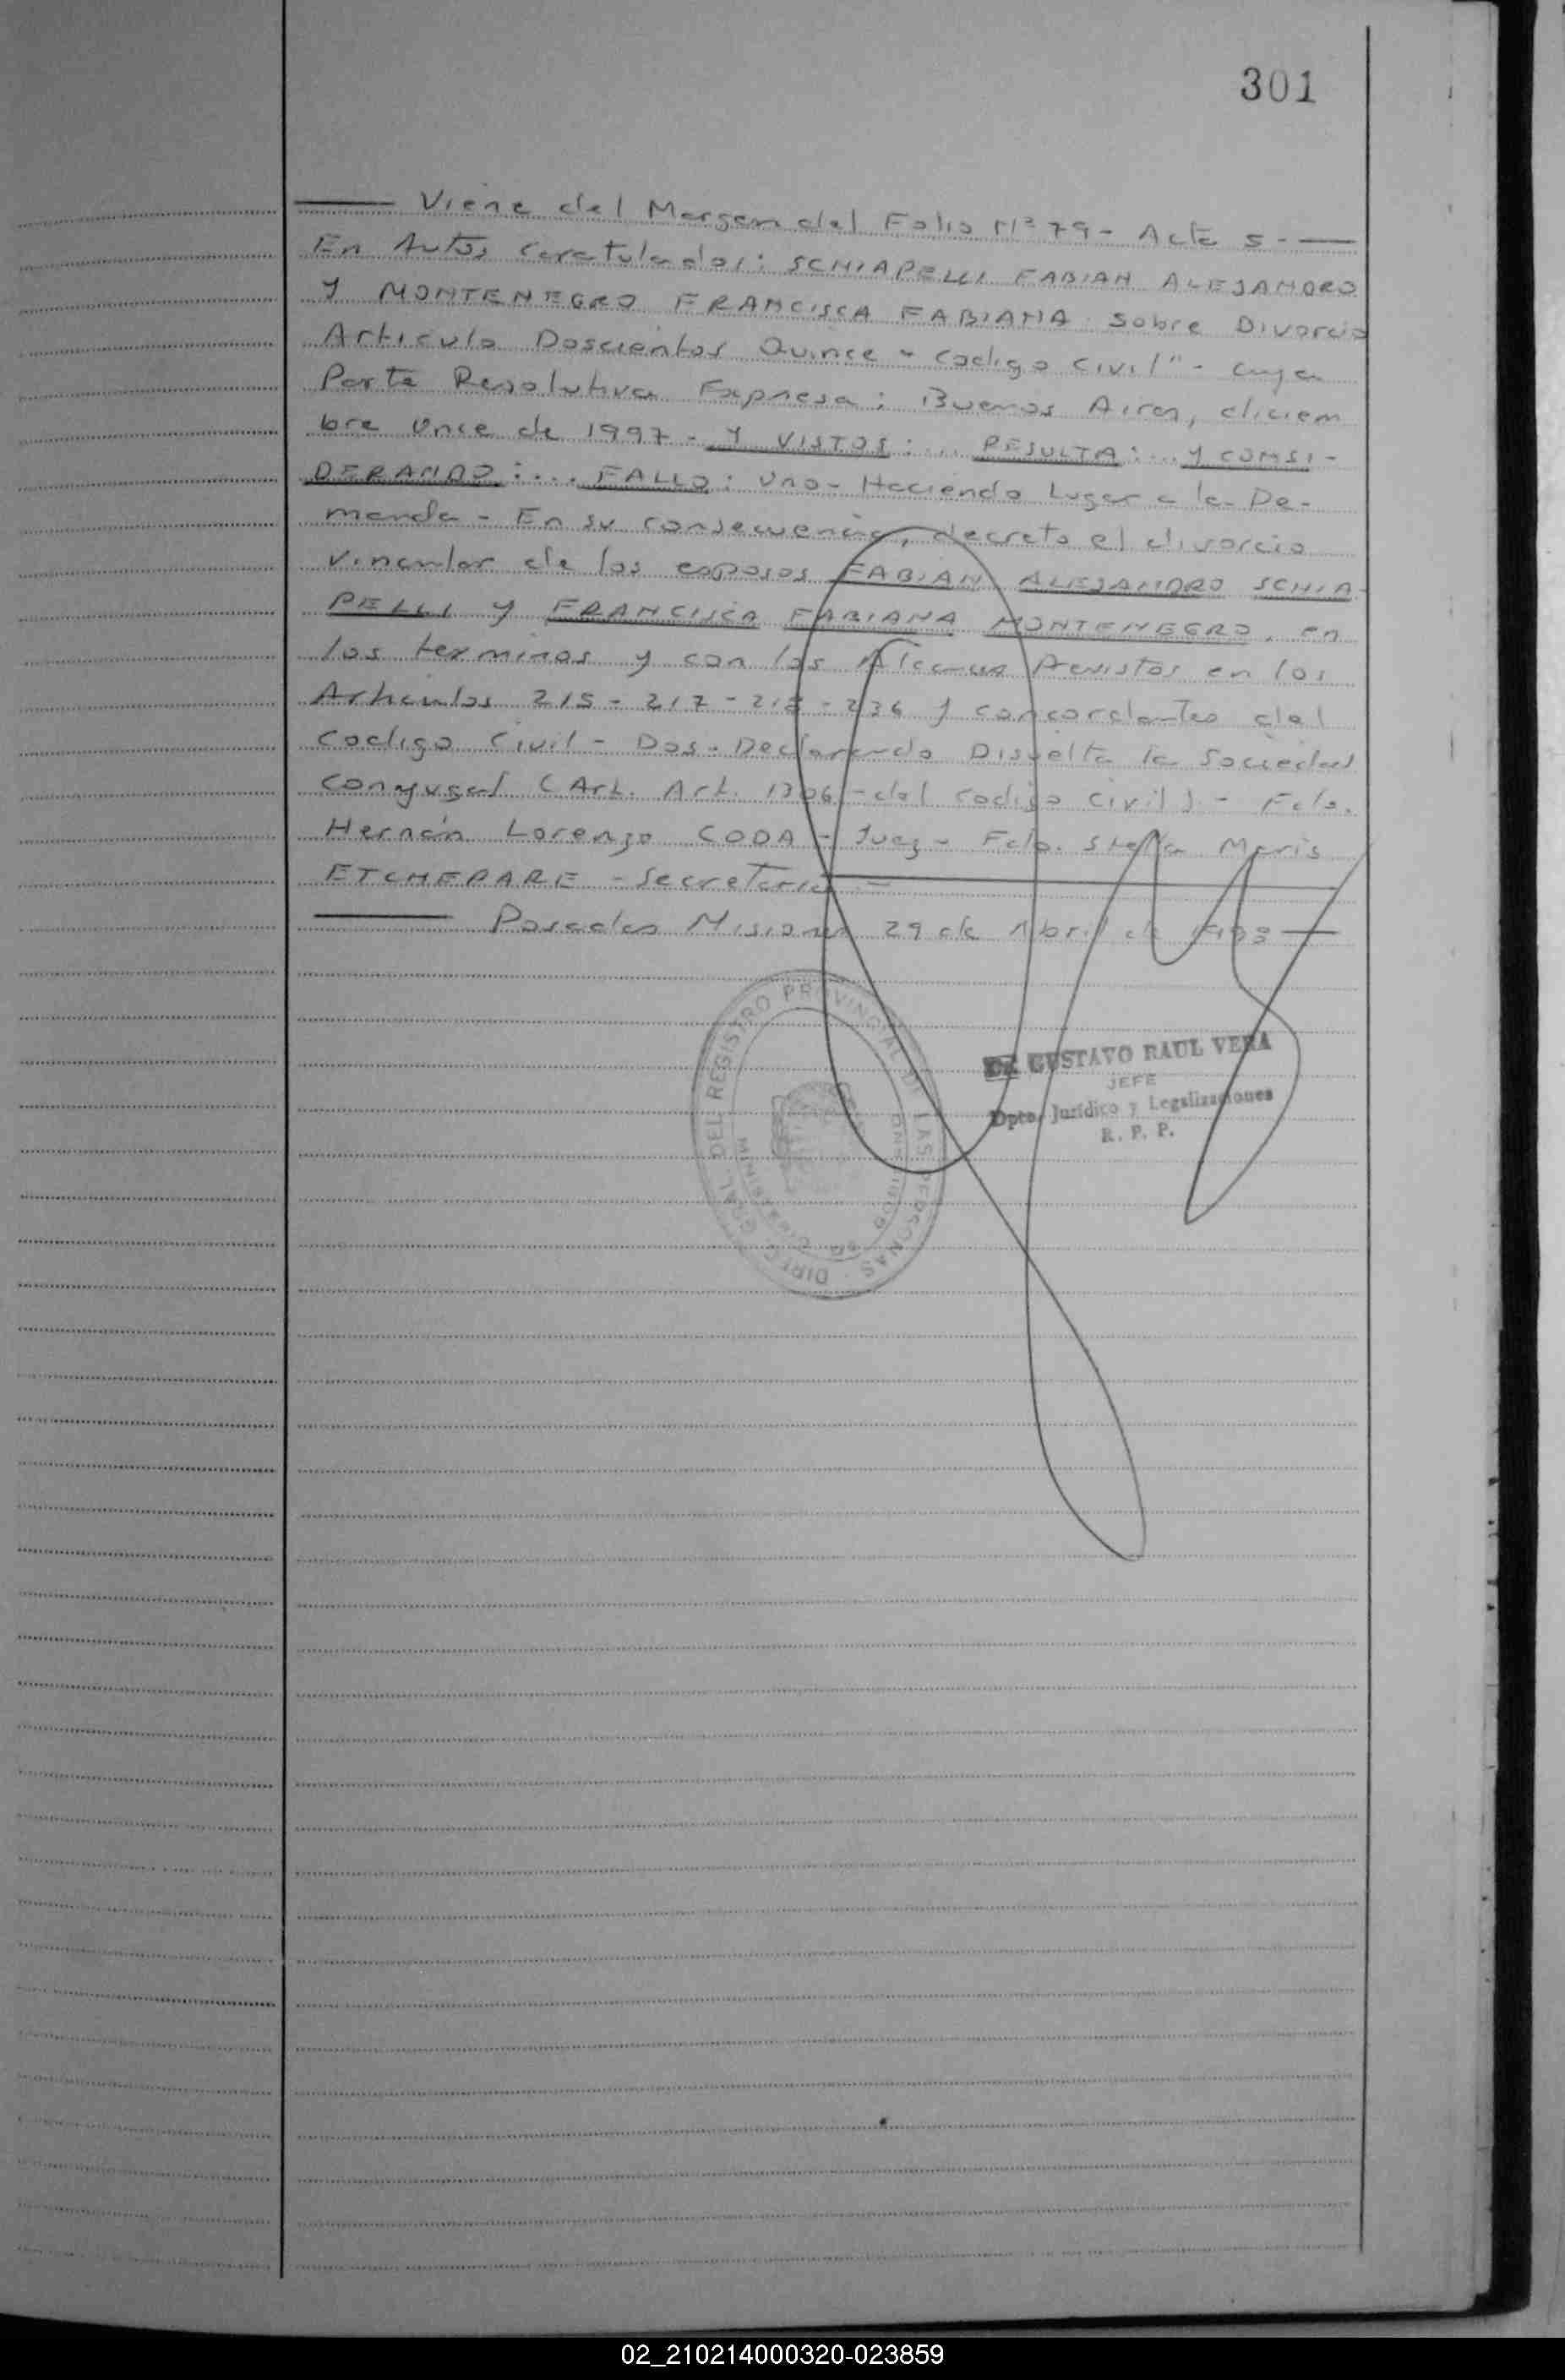 301
Viene del Margen del Folio Nº 79 - Acta 5 -
En Autos caratulados: SCHIAPELLI FABIAN ALEJANDRO
Y MONTENEGRO FRANCISCA FABIANA sobre Divorcio
Articulo Doscientos Quince - codigo civil" - cuya
Parte Resolutiva Expresa: Buenos Aires, diciem
bre once de 1997 - Y VISTOS: ... RESULTA: ... Y CONSI-
DERANDO: ... FALLO: Uno - Haciendo Lugar a la De-
manda - En su consecuencia, decreto el divorcio
vincular de los esposos FABIAN ALEJANDRO SCHIA-
PELLI y FRANCISCA FABIANA MONTENEGRO, en
los terminos y con los Alcances Previstos en los
Articulos 215 - 217 - 218 - 236 y concordantes del
codigo civil - Dos - Declarando Disuelta la Sociedad
conyugal (Art. Art. 1306 - del codigo civil) - Fdo.
Hernán Lorenzo CODA - Juez - Fdo. Stella Maris
ETCHEPARE - Secretaria -
Posadas Misiones 29 de Abril de
DIREC. GRAL DEL REGISTRO PROVINCIAL DE LAS PERSONAS
MINISTERIO DE GOBIERNO
Dr. GUSTAVO RAUL VERA
JEFE
Dpto. Jurídico y Legalizaciones
R. P. P.
02_210214000320-023859